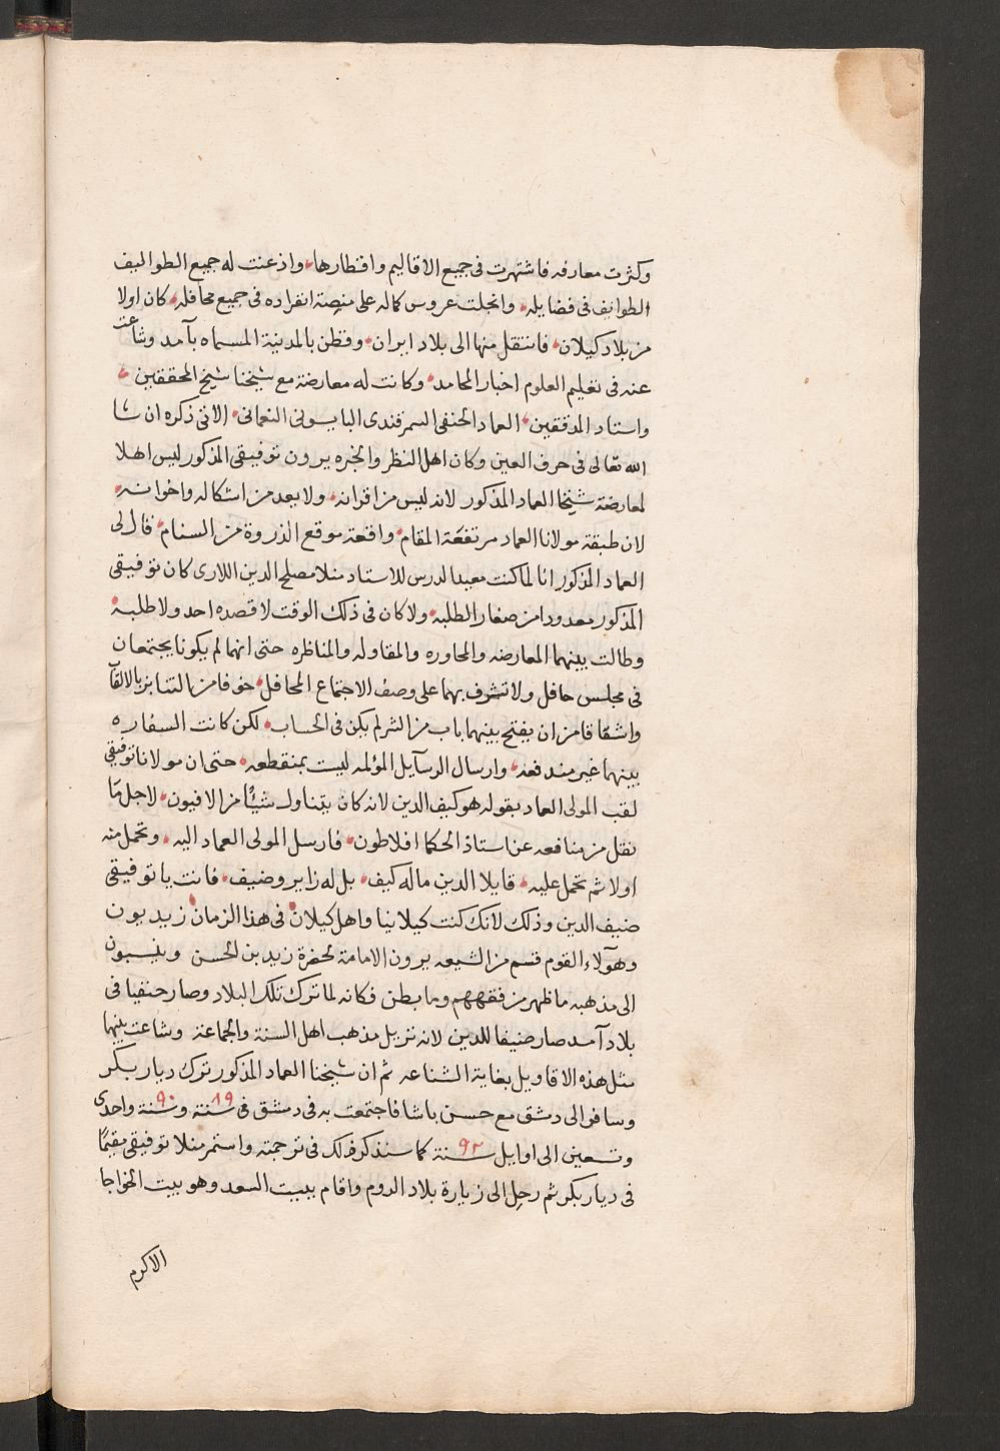 وكثرت معارفه فاشتهرت فى جميع الاقاليم واقطارها، واذعنت له جميع الطوالبف
الطوايف فى فضايله، وانجلت عروس كماله على منصة انفراده فى جميع محافله، كان اولا
من بلاد كيلان، فانتقل منها الى بلاد ايران، وقطن بالمدينة المسماه بآمد وشاعت
عنه فى تعليم العلوم اخبار المحامد، وكانت له معارضة مع شيخنا شيخ المحققين،
واستاد المدققين، العماد الحنفى السمرقندى البايسونى النعمانى، الاتى ذكره ان شا
الله تعالى فى حرف العين وكان اهل النظر والخبره يرون توفيقى المذكور ليس اهلا
لمعارضة شيخنا العماد المذكور لانه ليس من اقرانه، ولا يعد من اشكاله واخوانه،
لان طبقة مولانا العماد مرتفعة المقام، واقعة موقع الذروة من السنام، قال لى
العماد المذكور انا لما كنت معيد الدرس للاستاد منلا مصلح الدين اللارى كان توفيقى
المذكور معدودا من صغار الطلبه، ولا كان فى ذلك الوقت لا قصده احد ولا طلبه،
وطالت بينهما المعارضه والمحاوره والمقاوله والمناظره حتى انهما لم يكونا يجتمعان
فى مجلس حافل ولا تتشرف بهما على وصف الاجتماع المحافل، خوفا من التنابز بالالقآ
واشفاقا من ان يفتح بينهما باب من الشر لم يكن فى الحساب، لكن كانت السفاره
بينهما غير مندفعه، وارسال الرسآيل المؤلمه ليست بمنقطعه، حتى ان مولانا توفيقى
لقب المولى العماد بقوله هو كيف الدين لانه كان يتناول شيئًا من الافيون، لاجل مّا
نقل من منافعه عن استاذ الحكما افلاطون، فارسل المولى العماد اليه، وتحمل منه
اولا ثم تحمل عليه، قايلا الدين ماله كيف، بل له زاير وضيف، فانت يا توفيقى
ضيف الدين وذلك لانك كنت كيلانيا واهل كيلان فى هذا الزمان زيديون
وهؤلاء القوم قسم من الشيعه يرون الامامة لحضرة زيد بن الحسن وينسبون
الى مذهبه ما ظهر من فقههم وما بطن فكانه لما ترك تلك البلاد وصار حنفيا فى
بلاد آمد صار ضيفا للدين لانه نزيل مذهب اهل السنة والجماعة وشاعت بينهما
مثل هذه الاقاويل بغاية الشناعه ثم ان شيخنا العماد المذكور ترك ديار بكر
وسافر الى دمشق مع حسن باشا فاجتمعت به فى دمشق فى سنة ٨٩ وسنة ٩٠ وسنة واحدى
وتسعين الى اوايل سنة ٩٢ كما سنذكر ذلك فى ترجمته واستمر منلا توفيقى مقيمًا
فى ديار بكر ثم رحل الى زيارة بلاد الروم واقام ببيت السعد وهو بيت الخواجا
الاكرم